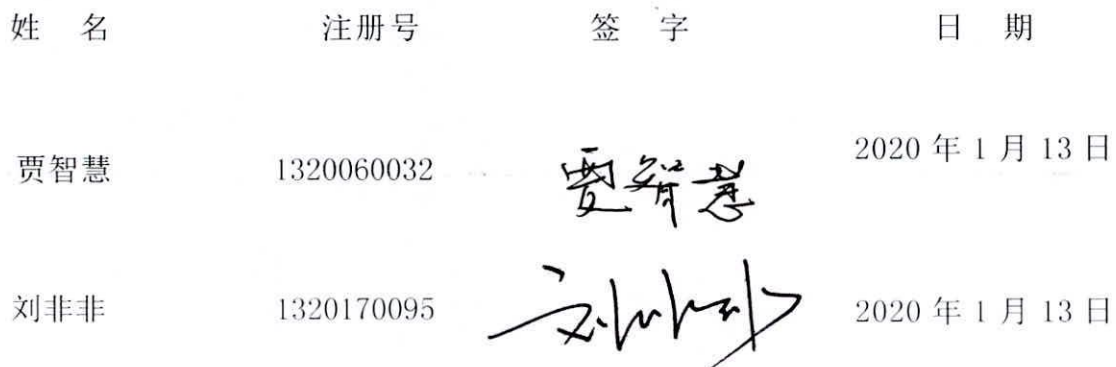 姓 名 注册号 签 字 日 期
贾智慧 1320060032 贾智慧 2020 年 1 月 13 日
刘非非 1320170095 刘非非 2020 年 1 月 13 日